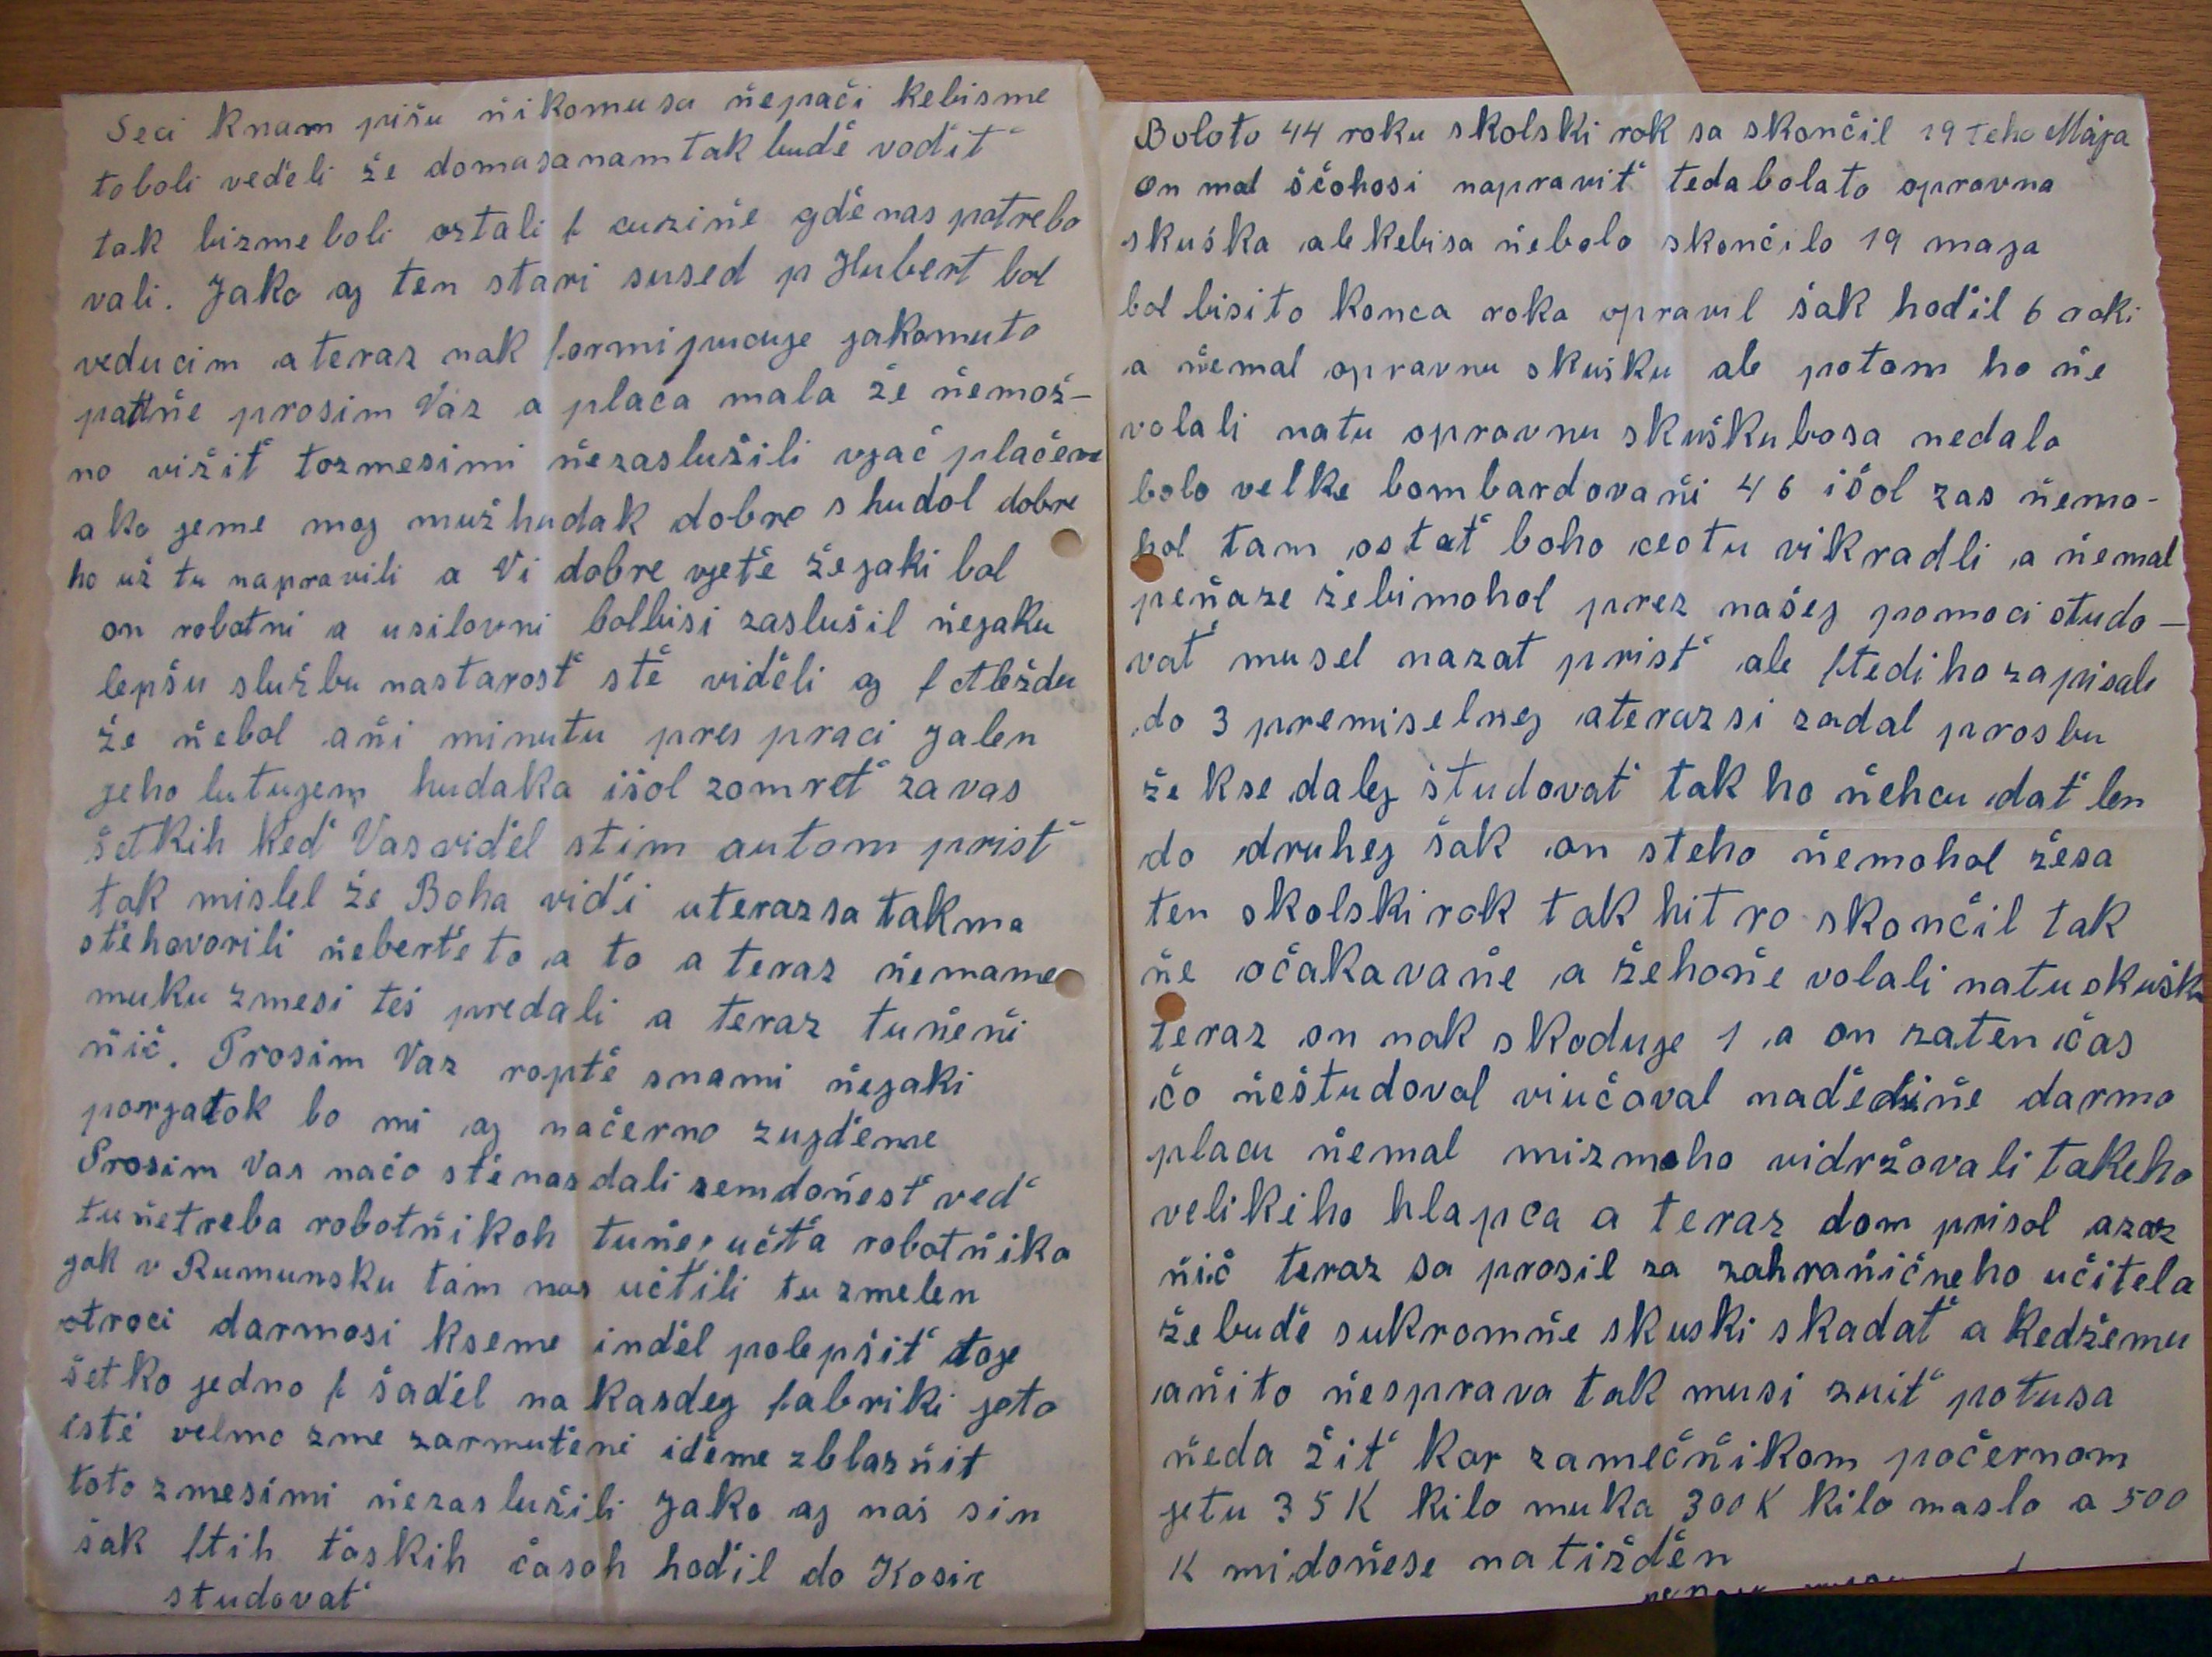 Seci knam pišu ňikomusa ňepači kebisme
toboli veďeli že domasanamtak buďe voďiť
tak bizmeboli ostali f cuziňe gďenas potrebo
vali. Jako aj ten stari sused p Hubert bol
veducim a teraz nak formi pracuje jakomuto
patňe prosim Vaz a plača mala že ňemož-
no vižiť tozmesimi ňezaslužili vjač plačeme
ako jeme moj mužhudak dobre shudol dobre
ho už tu napravili a Vi dobre vjeťe žejaki bol
on robotni a usilovni bolbisi zaslušil ňejaku
lepšu službu nastarosť sťe viďeli aj f Aleždu
že ňebol aňi minutu pres praci jalen
jeho lutujem hudaka išol zomreť zavas
šetkih keď Vasviďel stim autom prisť
tak mislel že Boha viďi a terazsa takma
sťehovorili ňeberťe to a to a teraz ňemame
muku zmesi teš predali a teraz tuňeňi
ňič. Prosim Vaz ropťe snami ňejaki
porjadok bo mi aj načerno zujďeme
Prosim Vas načo sťenas dali semdoňesť veď
tuňetreba robotňikoh tuňe učťa robotňika
jak v Rumunsku tam nas učťili tu zmelen
otroci darmosi kseme inďel polepšiť toje
šetko jedno f šaďel na kasdej fabriki jeto
isťe velmo zme zarmuťeni iďeme zblazňiť
toto zmesimi ňezaslužili Jako aj naš sin
šak ftih ťaskih časoh hoďil do Kosic
studovať
Boloto 44 roku skolski rok sa skončil 19 teho Mája
on mal ščohosi napraviť tedabolato opravna
skuška alekebisa ňebolo skončilo 19 maja
bol bisito konca roka opravil šak hoďil 6 roki
a ňemal opravnu skušku ale potom ho ňe
volali natu opravnu skuškubosa nedalo
bolo velke bombardovaňi 46 išol zas ňemo-
hol tam ostať boho ceotu vikradli a ňemal
peňaze žebimohol prez našej pomoci studo-
vať musel nazat prisť ale ftedi ho zapisali
do 3 premiselnej aterazsi zadal prosbu
že kse dalej študovať tak ho ňehcu dať len
do druhej šak on steho ňemohol žesa
ten skolski rok tak hitro skončil tak
ňe očakavaňe a žehoňe volali natu skušk
teraz on nak skoduje 1 a on zaten čas
čo ňeštudoval viučoval naďeďiňe darmo
placu ňemal mizmeho vidržovali takeho
velikiho hlapca a teraz dom prisol azaz
ňič teraz sa prosil za zahraňičneho učitela
že buďe sukromňe skuski skadať a kedžemu
aňito ňesprava tak musi zuiť potusa
ňeda žiť kor zamečňikom počernom
jetu 35 K kilo muka 300 K kilo maslo a 500
K midoňese na tižďen